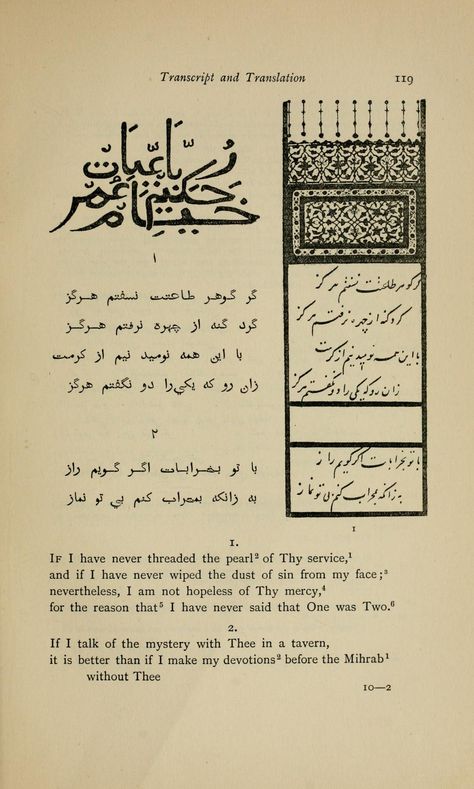 Transcript and Translation 119
رباعیات
حکیم عمر
خیام
۱
گر گوهر طاعتت نسفتم هرگز
گرد گنه از چهره نرفتم هرگز
با این همه نومید نیم از کرمت
زان رو که یکی را دو نگفتم هرگز
۲
با تو بخرابات اگر گویم راز
به زانکه بمحراب کنم بی تو نماز
گر گوهر طاعتت نسفتم هرگز
گرد گنه از چهره نرفتم هرگز
با این همه نومید نیم از کرمت
زان رو که یکی را دو نگفتم هرگز
با تو بخرابات اگر گویم راز
به زانکه بمحراب کنم بی تو نماز
1
1.
IF I have never threaded the pearl² of Thy service,¹
and if I have never wiped the dust of sin from my face;³
nevertheless, I am not hopeless of Thy mercy,⁴
for the reason that⁵ I have never said that One was Two.⁶
2.
If I talk of the mystery with Thee in a tavern,
it is better than if I make my devotions² before the Mihrab¹
without Thee
10—2